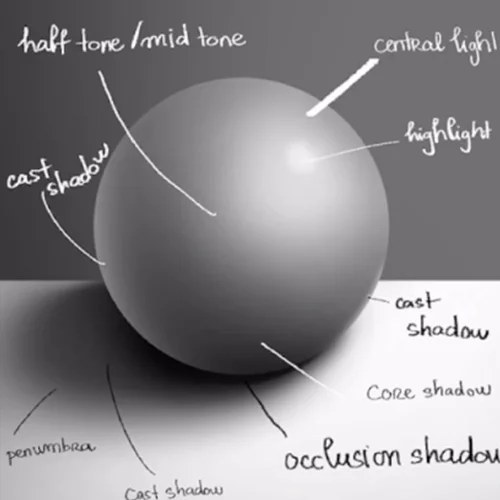 half tone/mid tone
central light
highlight
cast
shadow
cast
shadow
core shadow
penumbra
occlusion shadow
cast shadow